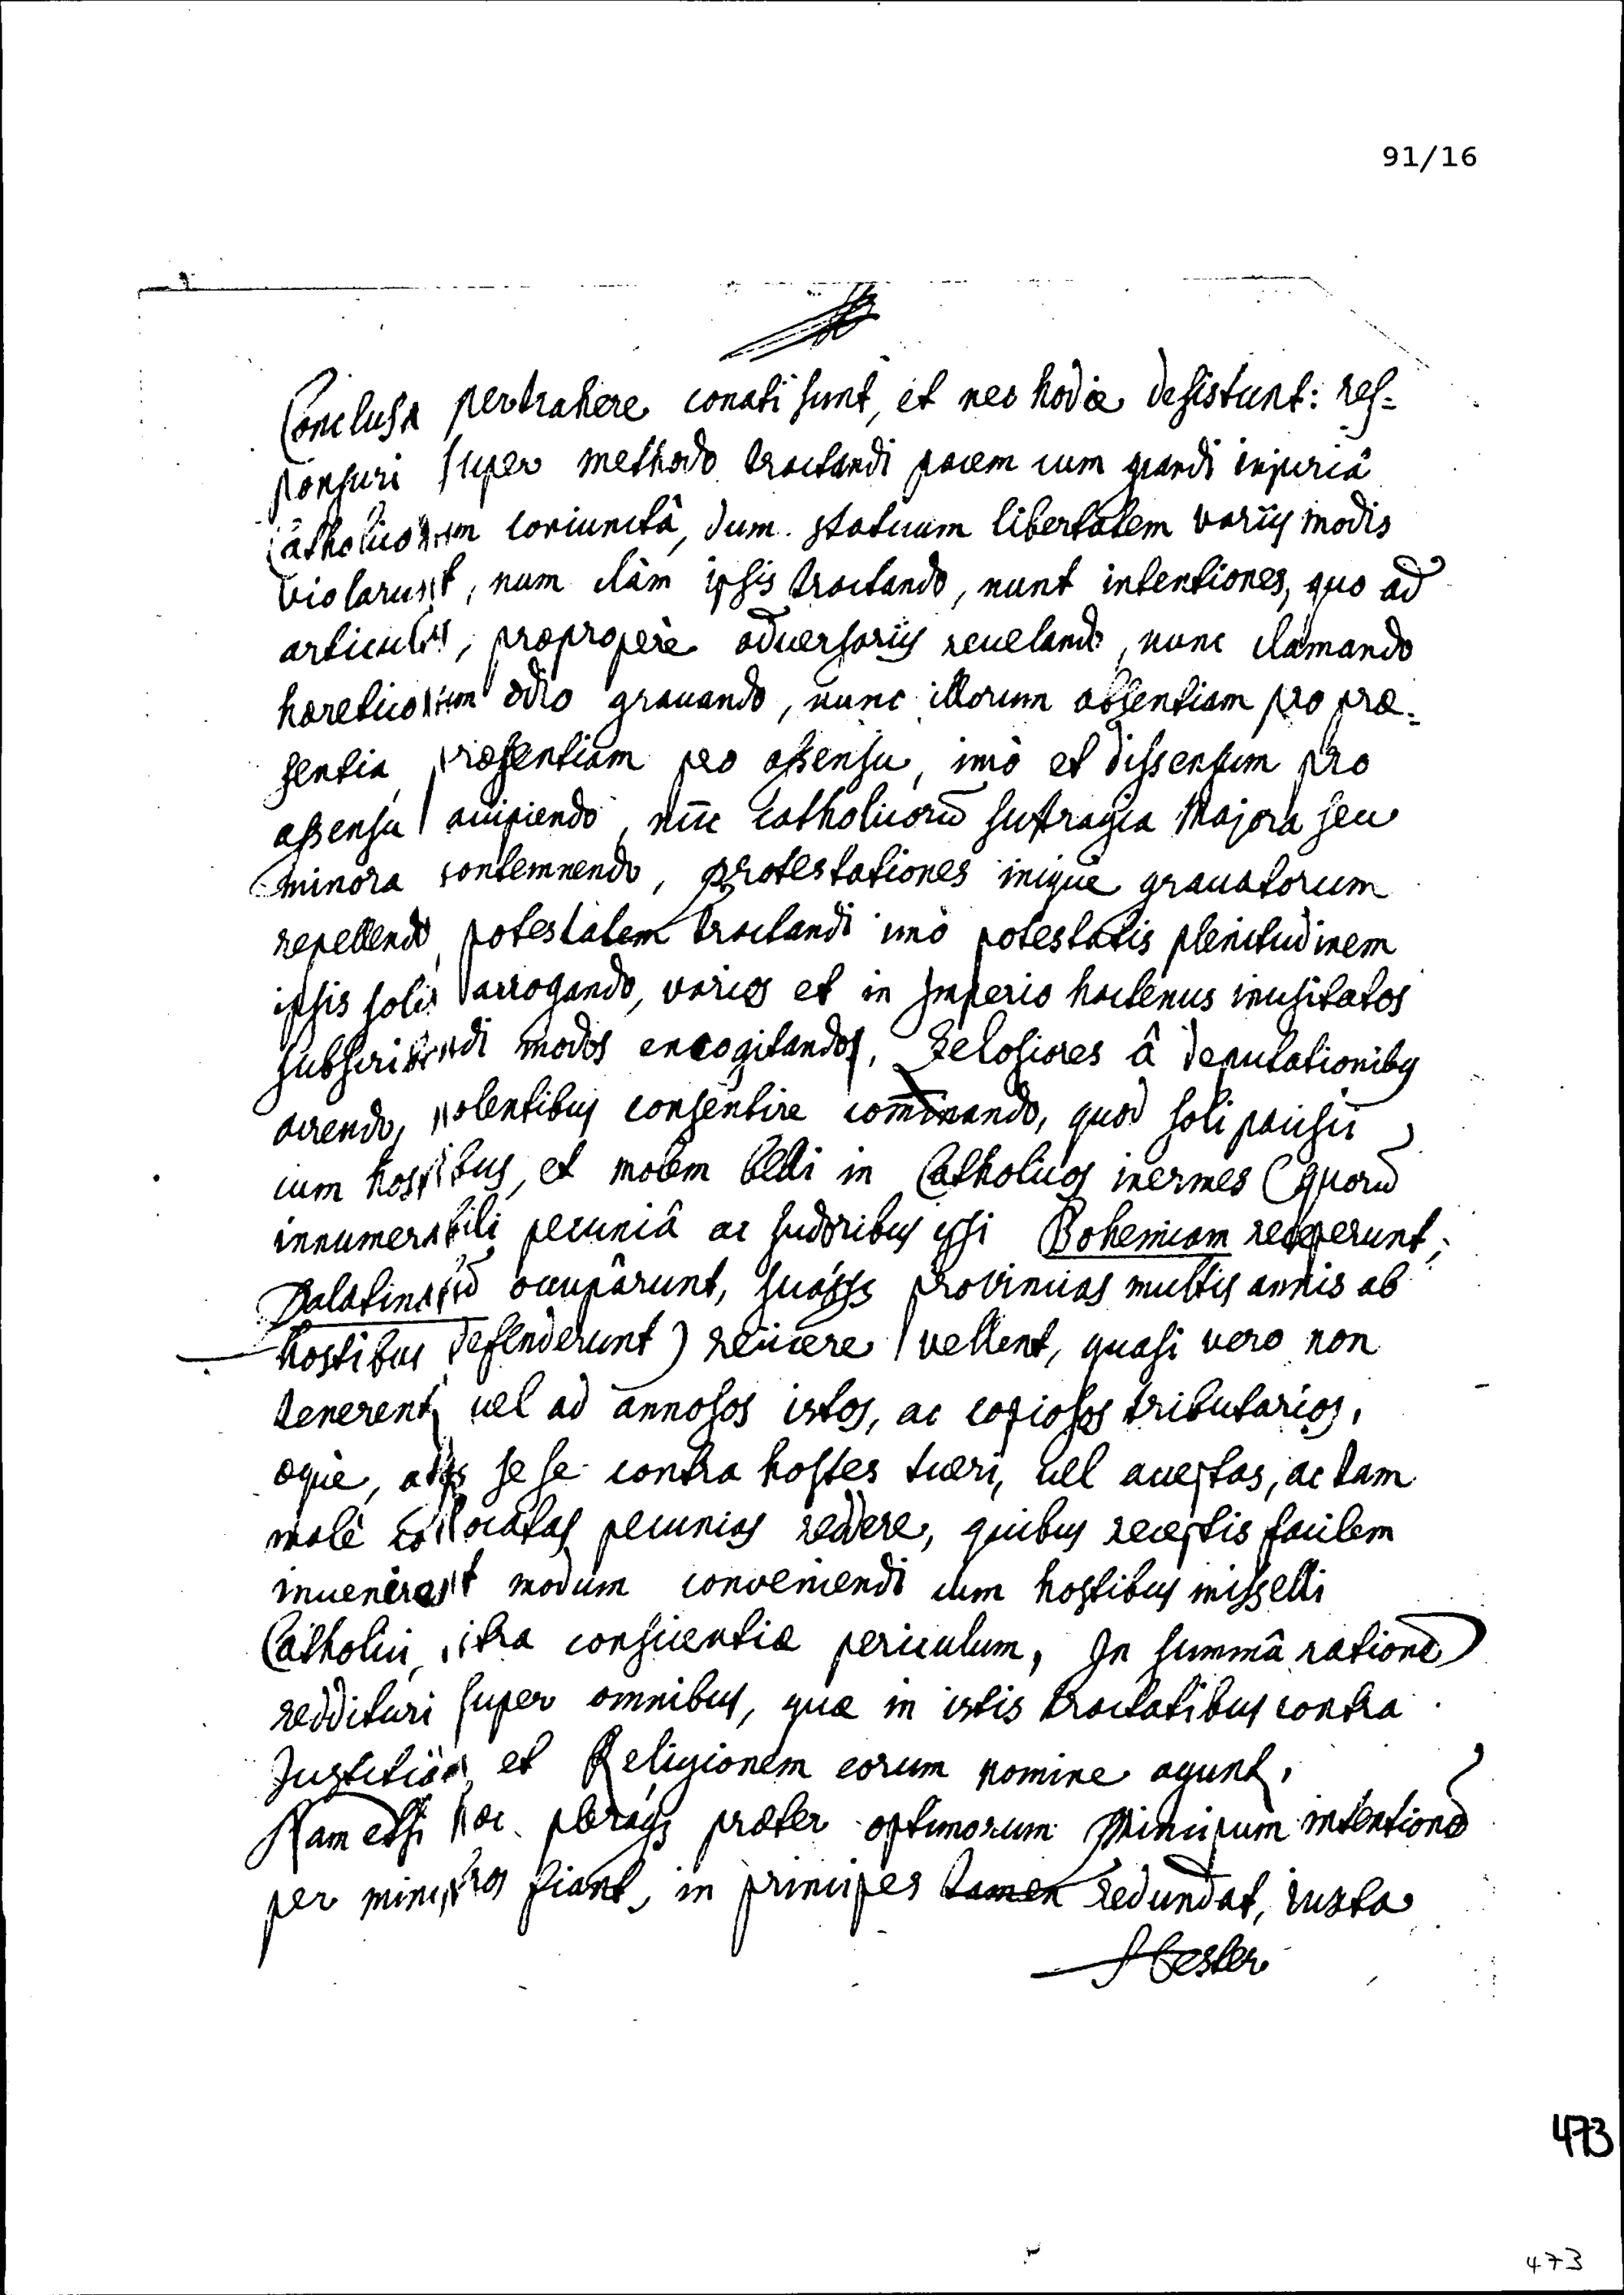 91/16
Conclusa pertrahere conati sunt, et nec hodie desistunt: res-
ponsuri super methodo tractandi pacem cum grandi injuriâ
Catholicorum coniunctâ, dum statuum libertatem varijs modis
violarunt, num clàm ipsis tractando, nunt intentiones, quo ad
articulos, præproperè adversarijs reuelando, nunc clamando
hæreticorum odio grauando, nunc illorum absentiam pro præ-
sentia, præsentiam pro assensu, imò et dissensum pro
assensu accipiendo, nūc Catholicorū suffragia Majora seu
minora contemnendo, protestationes iniquè grauatorum
repellendo, potestatem tractandi imò potestatis plenitudinem
ipsis solis arrogando, varios et in Imperio hactenus inusitatos
subscribendi modos encogitandos, Zelosiores â deputationibus
arcendo, nolentibus consentire comminando, quod soli pacisci
cum hostibus, et molem belli in Catholicos inermes (quorū
innumerabili pecuniâ ac sudoribus ipsi Bohemiam receperunt,
Palatinatū occupârunt, suásq provincias multis annis ab
hostibus defenderunt) reijcere vellent, quasi vero non
tenerent, uel ad annosos istos, ac copiosos tributarios,
æquè, atq se se contra hostes tueri, uel acceptas, ac tam
malè collocatas pecunias reddere, quibus receptis facilem
inuenirent modum conveniendi cum hostibus misselli
Catholici, citra conscientiæ periculum, In summâ rationē
reddituri super omnibus, quæ in istis tractatibus contra
Justitiam et Religionem eorum nomine agunt,
Nam etsi hæc pleraq præter optimorum Principum intentionē
per ministros fiant, in principes tamen redundat, iuxta
Hester
473
473